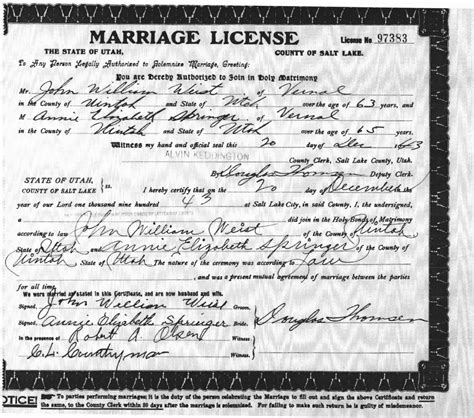 MARRIAGE LICENSE License No 97383
THE STATE OF UTAH, COUNTY OF SALT LAKE.
To Any Person Legally Authorized to Solemnize Marriage, Greeting:
You are Hereby Authorized to Join in Holy Matrimony
Mr. John William Weist of Vernal
in the County of Uintah and State of Utah over the age of 63 years, and
M Annie Elizabeth Springer of Vernal
in the County of Uintah and State of Utah over the age of 65 years.
Witness my hand and official seal this 20 day of Dec
ALVIN KEDDINGTON
County Clerk, Salt Lake County, Utah.
By Douglas Thomsen Deputy Clerk.
STATE OF UTAH,
COUNTY OF SALT LAKE } ss. I hereby certify that on the 20 day of December in the
year of our Lord one thousand nine hundred 43 at Salt Lake City, in said County, I, the undersigned,
a did join in the Holy Bonds of Matrimony
according to law John William Weist of the County of Uintah
State of Utah and Annie Elizabeth Springer of the County of
Uintah State of Utah The nature of the ceremony was according to law
and was a present mutual agreement of marriage between the parties
for all time.
We were married as stated in this Certificate, and are now husband and wife.
Signed, John William Weist Groom.
Signed, Annie Elizabeth Springer Bride. Douglas Thomsen
In the presence of Robert A. Olsen Witness.
C. L. Countryman Witness.
NOTICE! To parties performing marriages: it is the duty of the person celebrating the Marriage to fill out and sign the above Certificate and return
the same, to the County Clerk within 30 days after the marriage is solemnized. For failure to make such return he is guilty of misdemeanor.